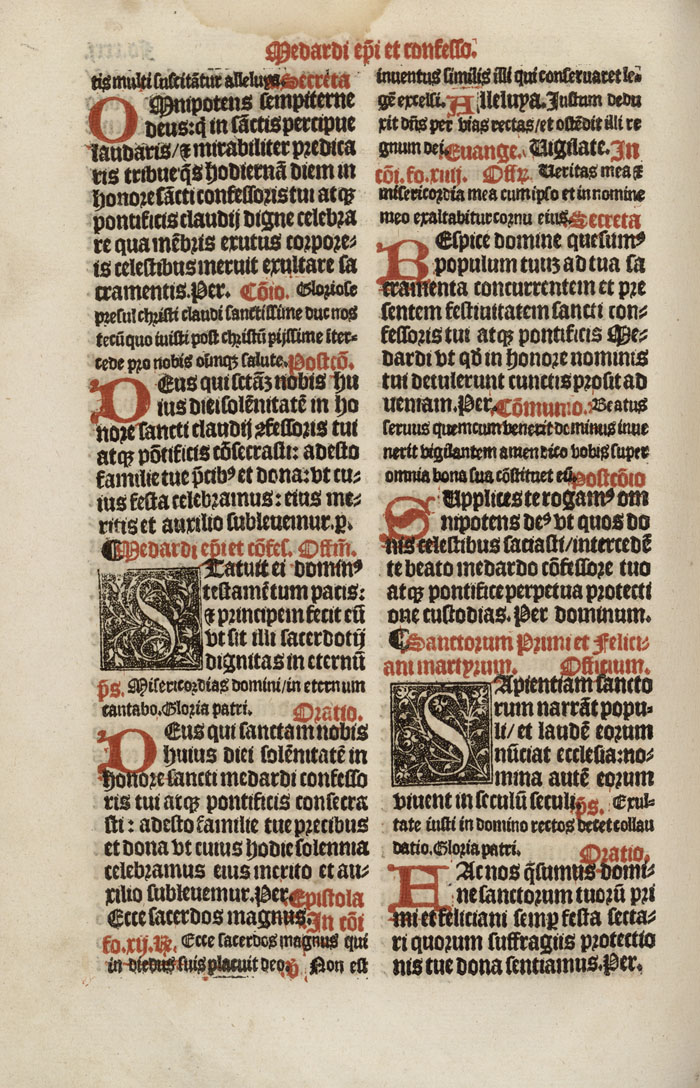 Medardi ep̄i et confesso.
tis multi suscitātur alleluya. Secreta
OMnipotens sempiterne
deus: q̄ in sāctis percipue
laudaris/ & mirabiliter predica
ris tribue q̄s hodiernā diem in
honore sācti confessoris tui atqꝫ
pontificis claudij digne celebra
re qua mēbris exutus corpore⸗
is celestibus meruit exultare sa
cramentis. Per. Cōio. Gloriose
presul christi claudi sanctissime duc nos
tecū quo iuisti post christū pijssime iter⸗
cede pro nobis oīmqꝫ salute. Postcō.
DEus qui sctāꝫ nobis hu
ius diei solēnitatē in ho
nore sancti claudij ꝯfessoris tui
atqꝫ pōtificis cōsecrasti: adesto
familie tue p̄cibꝰ et dona: vt cu⸗
ius festa celebramus: eius me⸗
ritis et auxilio subleuemur. p.
¶ Medardi ep̄i et cōfes. Offīm.
STatuit ei dominꝰ
testamētum pacis:
& principem fecit eū
vt sit illi sacerdotij
dignitas in eternū
ps. Misericordias domini/ in eternum
cantabo. Gloria patri. Oratio.
DEus qui sanctam nobis
huius diei solēnitatē in
honore sancti medardi confesso
ris tui atqꝫ pontificis consecra
sti: adesto familie tue precibus
et dona vt cuius hodie solennia
celebramus eius merito et au⸗
xilio subleuemur. Per. Epistola
Ecce sacerdos magnus. In cōi
fo. xij. ℟. Ecce sacerdos magnus qui
in diebus suis placuit deo. ℣ Non est
inuentus similis illi qui conseruaret le⸗
gē excelsi. Alleluya. Iustum dedu
xit dn̄s per vias rectas/ et ostēdit illi re
gnum dei. Euange. Vigilate. In
cōi. fo. xiiij. Offꝝ. Veritas mea &
misericordia mea cum ipso et in nomine
meo exaltabitur cornu eius. Secreta
REspice domine quesumꝰ
populum tuuꝫ ad tua sa
cramenta concurrentem et pre
sentem festiuitatem sancti con⸗
fessoris tui atqꝫ pontificis Me⸗
dardi vt qd̄ in honore nominis
tui detulerunt cunctis prosit ad
veniam. Per. Cōmunio. Beatus
seruus quem cum venerit dominus inue
nerit vigilantem amen dico vobis super
omnia bona sua cōstituet eū. Postcōio
SUpplices te rogamꝰ om
nipotens deꝰ vt quos do
nis celestibus saciasti/ intercedēte
te beato medardo cōfessore tuo
atqꝫ pontifice perpetua protecti
one custodias. Per dominum.
¶ Sanctorum Primi et Felici⸗
ani martyrum. Officium.
SApientiam sancto
rum narrāt popu⸗
li/ et laudē eorum
nūciat ecclesia: no⸗
mina autē eorum
viuent in seculū seculi. ps. Exul⸗
tate iusti in domino rectos decet collau
datio. Gloria patri. Oratio.
FAc nos q̄sumus domi⸗
ne sanctorum tuorū pri
mi et feliciani semꝑ festa secta⸗
ri quorum suffragiis protectio
nis tue dona sentiamus. Per.